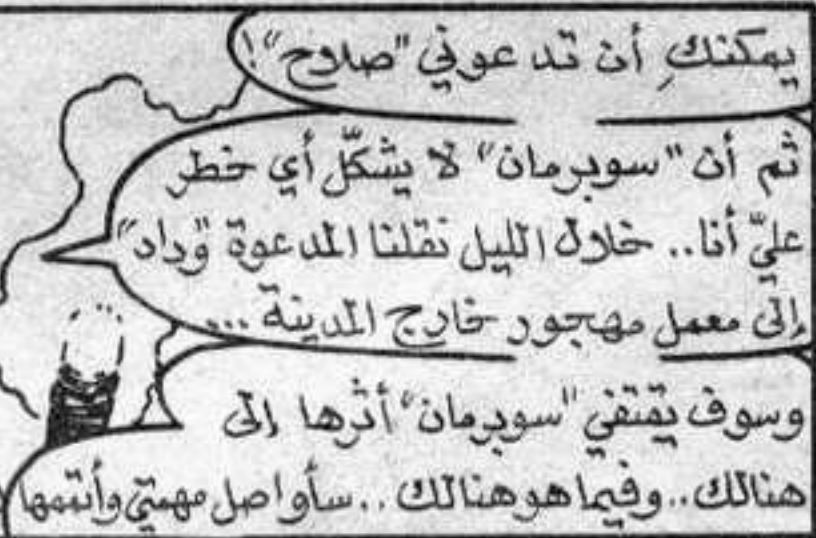 يمكنكِ أن تدعوني "صلاح"!
ثم أن "سوبرمان" لا يشكّل أي خطر
عليّ أنا.. خلال الليل نقلنا المدعوة "وداد"
إلى معمل مهجور خارج المدينة ...
وسوف يقتفي "سوبرمان" أثرها إلى
هنالك.. وفيما هو هنالك.. سأواصل مهمتي وأنتهمها